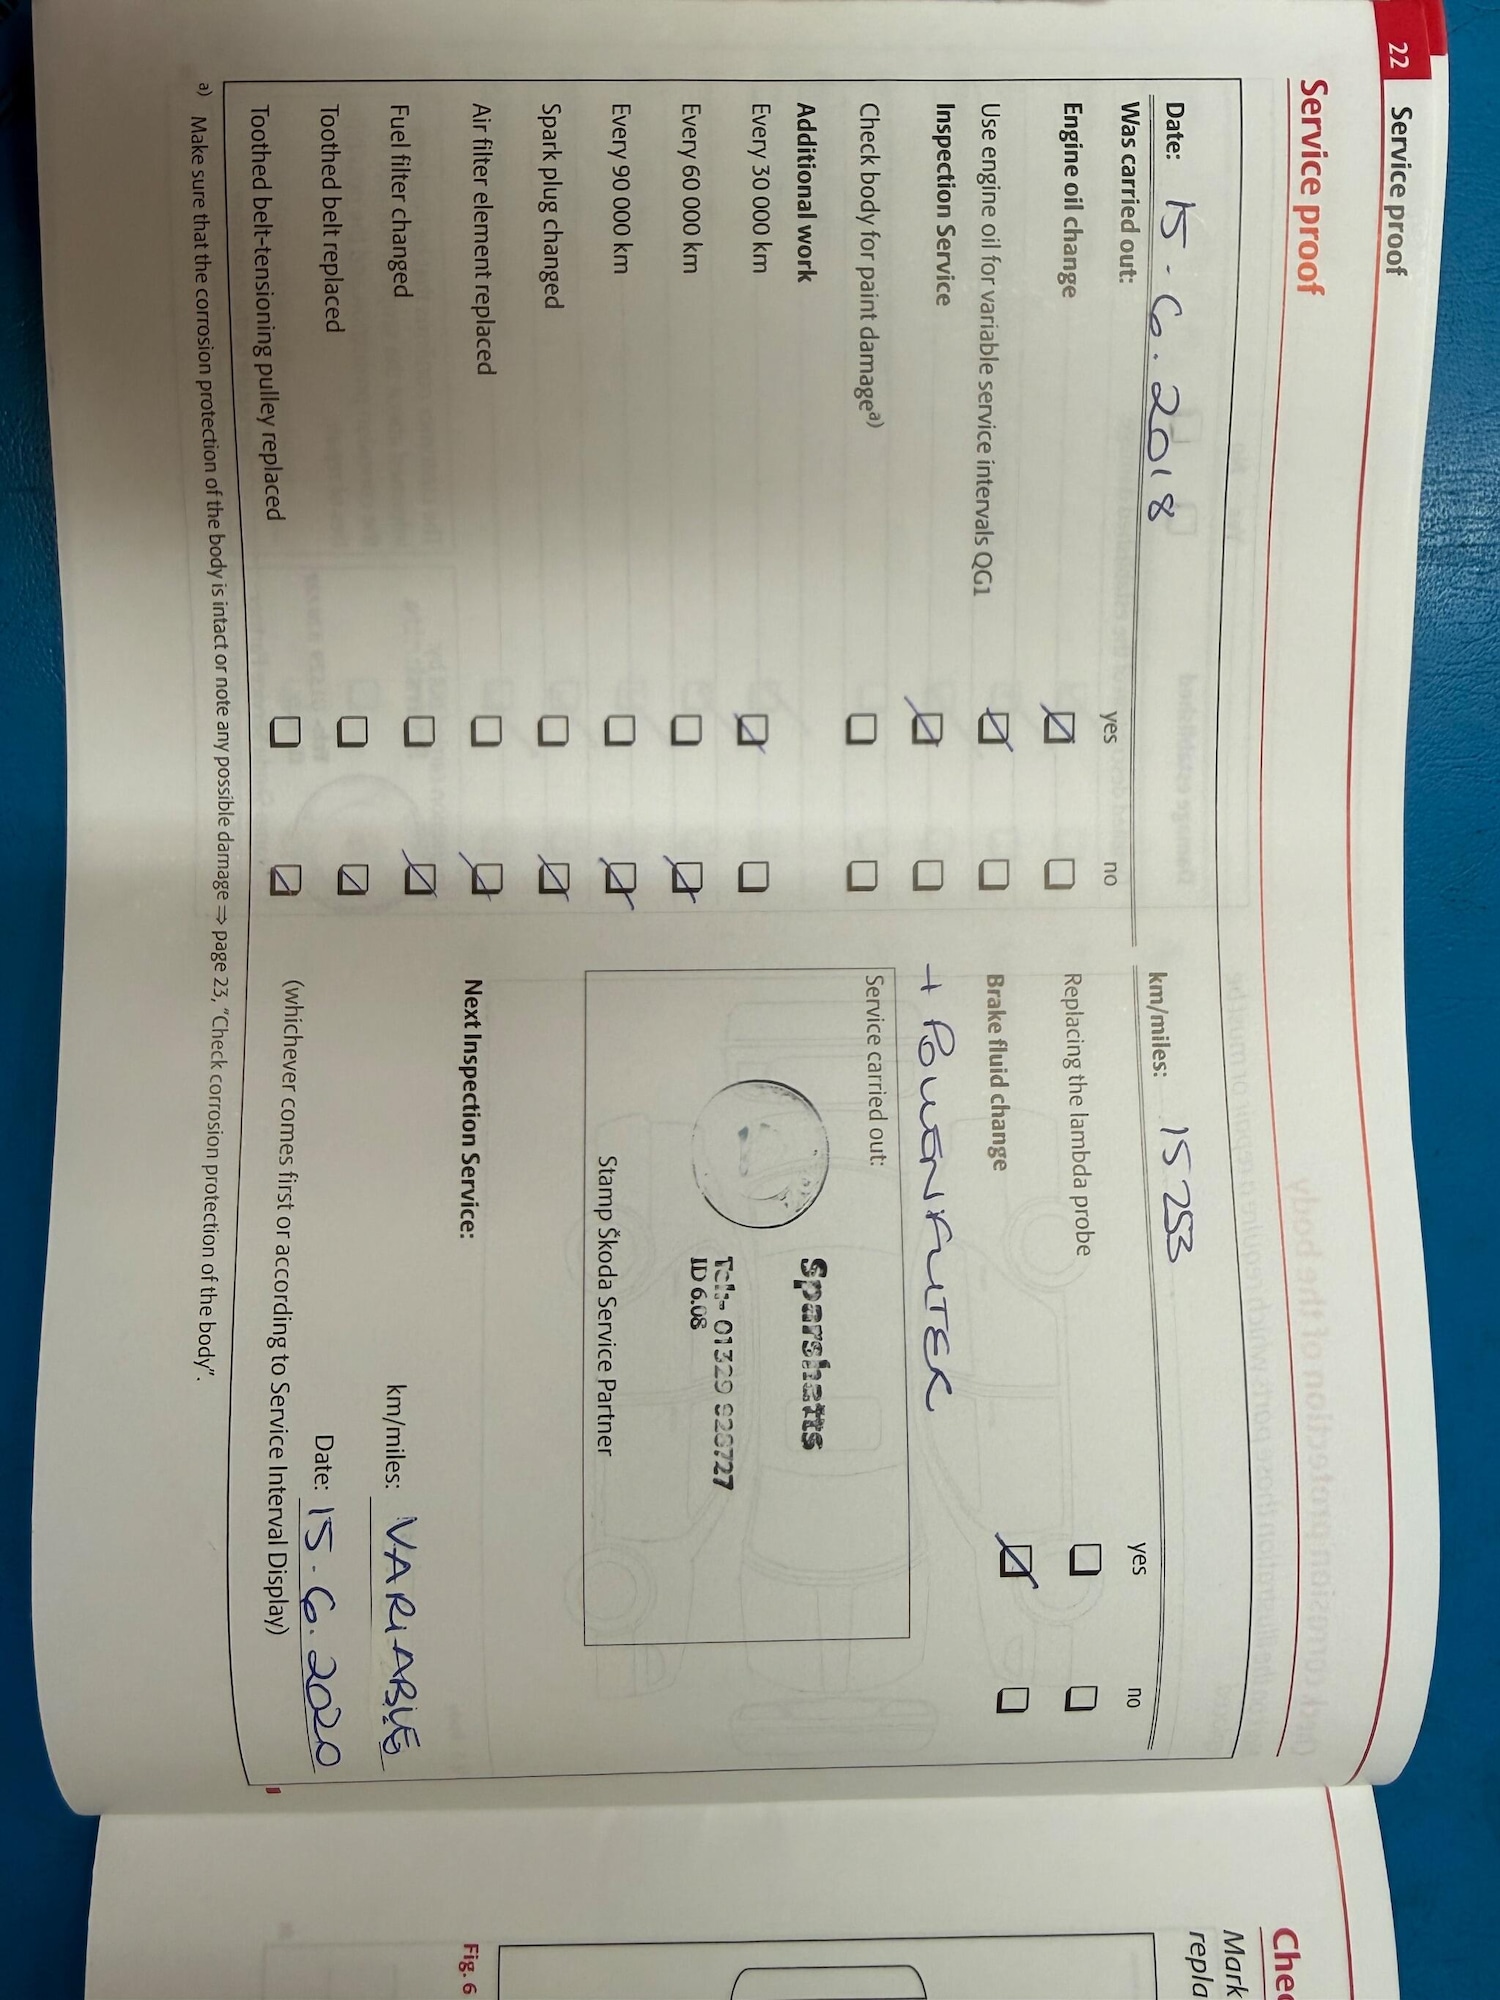 22 Service proof
Service proof
Date: 15.6.2018
km/miles: 15253
Was carried out: yes no
yes no
Engine oil change
Replacing the lambda probe
Use engine oil for variable service intervals QG1
Brake fluid change
Inspection Service
+ POLLEN FILTER
Check body for paint damage a)
Service carried out:
Additional work
Every 30 000 km
Every 60 000 km
Every 90 000 km
Spark plug changed
Air filter element replaced
Fuel filter changed
Toothed belt replaced
Toothed belt-tensioning pulley replaced
Sparshatts
Tel:- 01329
ID 6.08
Stamp Škoda Service Partner
Next Inspection Service:
km/miles: VARIABLE
Date: 15.6.2020
(whichever comes first or according to Service Interval Display)
a) Make sure that the corrosion protection of the body is intact or note any possible damage ⇒ page 23, "Check corrosion protection of the body".
Mark
Fig. 6